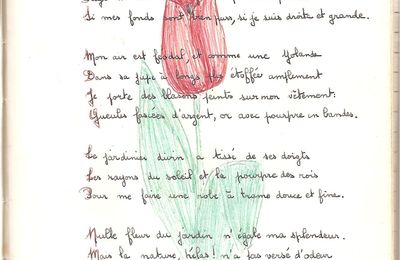 Si mes fonds sont bien purs, si je suis droite et grande.
Mon air est féodal, et comme une Yolande
Dans sa jupe à longs plis étoffée amplement
Je porte des blasons peints sur mon vêtement.
Gueules fasciées d'argent, or avec pourpre en bandes.
Le jardinier divin a tissé de ses doigts
Les rayons du soleil et la pourpre des rois
Pour me faire une robe à trame douce et fine.
Nulle fleur du jardin n'égale ma splendeur.
Mais la nature, hélas! n'a pas versé d'odeur